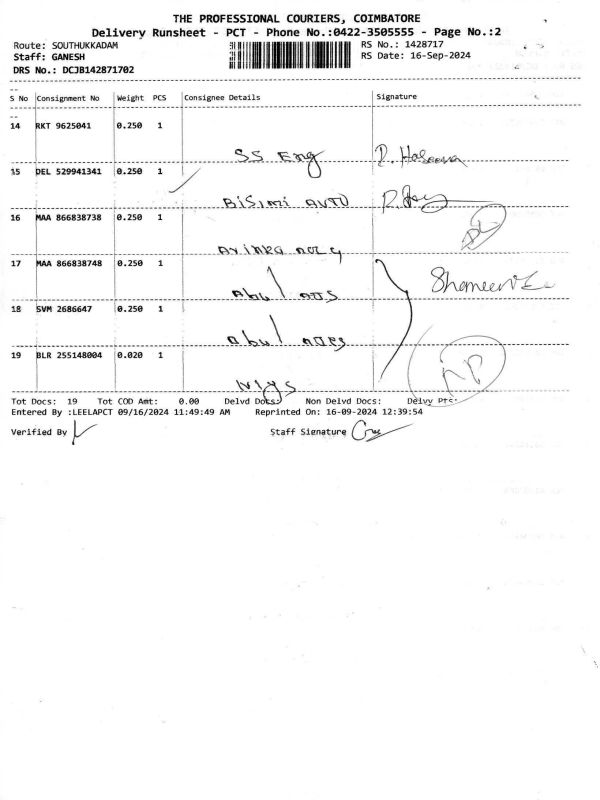 THE PROFESSIONAL COURIERS, COIMBATORE
Delivery Runsheet - PCT - Phone No.:0422-3505555 - Page No.:2
Route: SOUTHUKKADAM RS No.: 1428717
Staff: GANESH RS Date: 16-Sep-2024
DRS No.: DCJB142871702
S No Consignment No Weight PCS Consignee Details Signature
14 RKT 9625041 0.250 1
SS Eng
15 DEL 529941341 0.250 1
BISIMI AUTO
16 MAA 866838738 0.250 1
17 MAA 866838748 0.250 1
Abul
18 SVM 2686647 0.250 1
Abul
19 BLR 255148004 0.020 1
Tot Docs: 19 Tot COD Amt: 0.00 Delvd Docs: Non Delvd Docs: Delvy Pts:
Entered By :LEELAPCT 09/16/2024 11:49:49 AM Reprinted On: 16-09-2024 12:39:54
Verified By Staff Signature